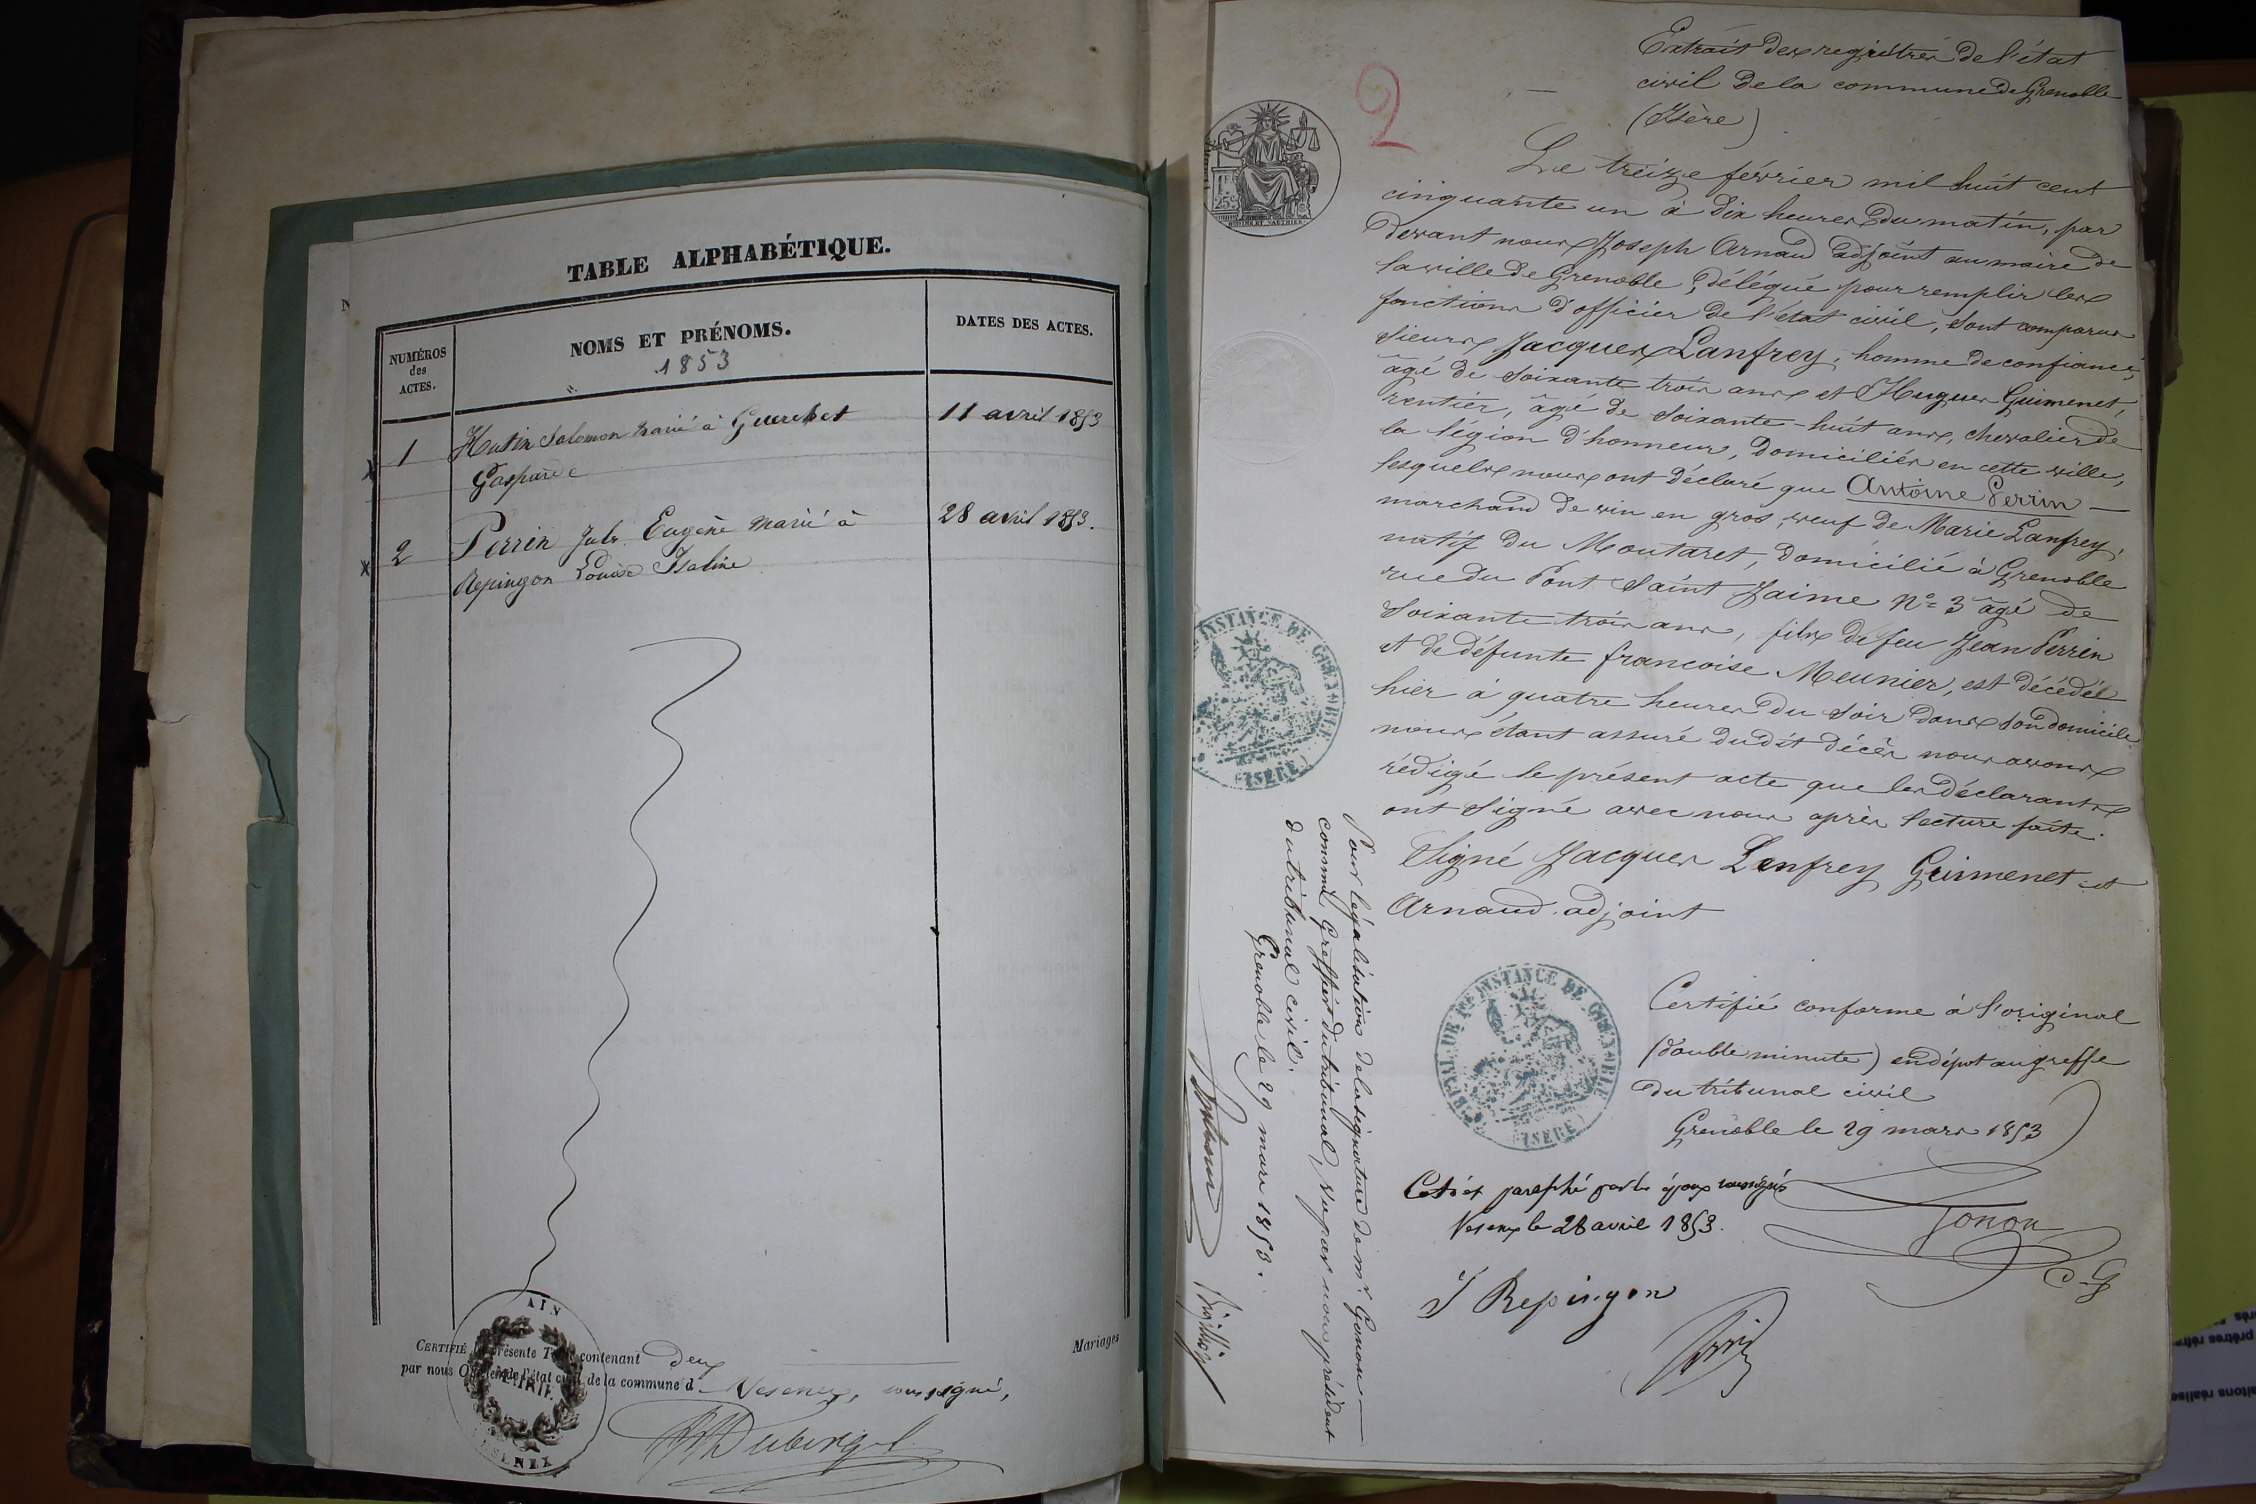 TABLE ALPHABÉTIQUE.
NUMÉROS
des
ACTES.
NOMS ET PRÉNOMS.
1853
DATES DES ACTES.
1 Hutin Salomon marié à Guerchet 11 avril 1853
Gasparde
2 Perrin Jules Eugène marié à 28 avril 1853.
Repingon Louise Isaline
CERTIFIÉ la présente Table contenant deux Mariages
par nous Officier de l'état civil de la commune d Vesenex, soussigné,
AIN
MAIRIE
VESENEX
2
Extrait des registres de l'état
civil de la commune de Grenoble
(Isère)
Le treize février mil huit cent
cinquante un à dix heures du matin, par
devant nous Joseph Arnaud adjoint au maire de
la ville de Grenoble, délégué pour remplir les
fonctions d'officier de l'état civil, sont comparus
sieurs Jacques Lanfrey, homme de confiance,
âgé de soixante trois ans et Hugues Guimenet,
rentier, âgé de soixante-huit ans, chevalier de
la légion d'honneur, domiciliés en cette ville,
lesquels nous ont déclaré que Antoine Perrin
marchand de vin en gros, veuf de Marie Lanfrey,
natif du Moutaret, domicilié à Grenoble
rue du Pont Saint Jaime N° 3 âgé de
soixante trois ans, fils de feu Jean Perrin
et de défunte francoise Meunier, est décédé
hier à quatre heures du soir dans son domicile
nous étant assuré dudit décès nous avons
rédigé le présent acte que les déclarants
ont signé avec nous après lecture faite.
Signé Jacques Lanfrey Guimenet et
Arnaud adjoint
25c
INSTANCE DE GRENOBLE
(ISÈRE)
TRIBUNAL DE 1RE INSTANCE DE GRENOBLE
(ISÈRE)
Certifié conforme à l'original
(double minute) en dépot au greffe
du tribunal civil
Grenoble le 29 mars 1853
Gonon
C. G
Coté et paraphé par les époux soussignés
Vesenex le 28 avril 1853.
I Repingon
Perrin
Pour légalisation de la signature de mr. Gonon
commis Greffier du tribunal, vu par nous président
du tribunal civil.
Grenoble le 29 mars 1853.